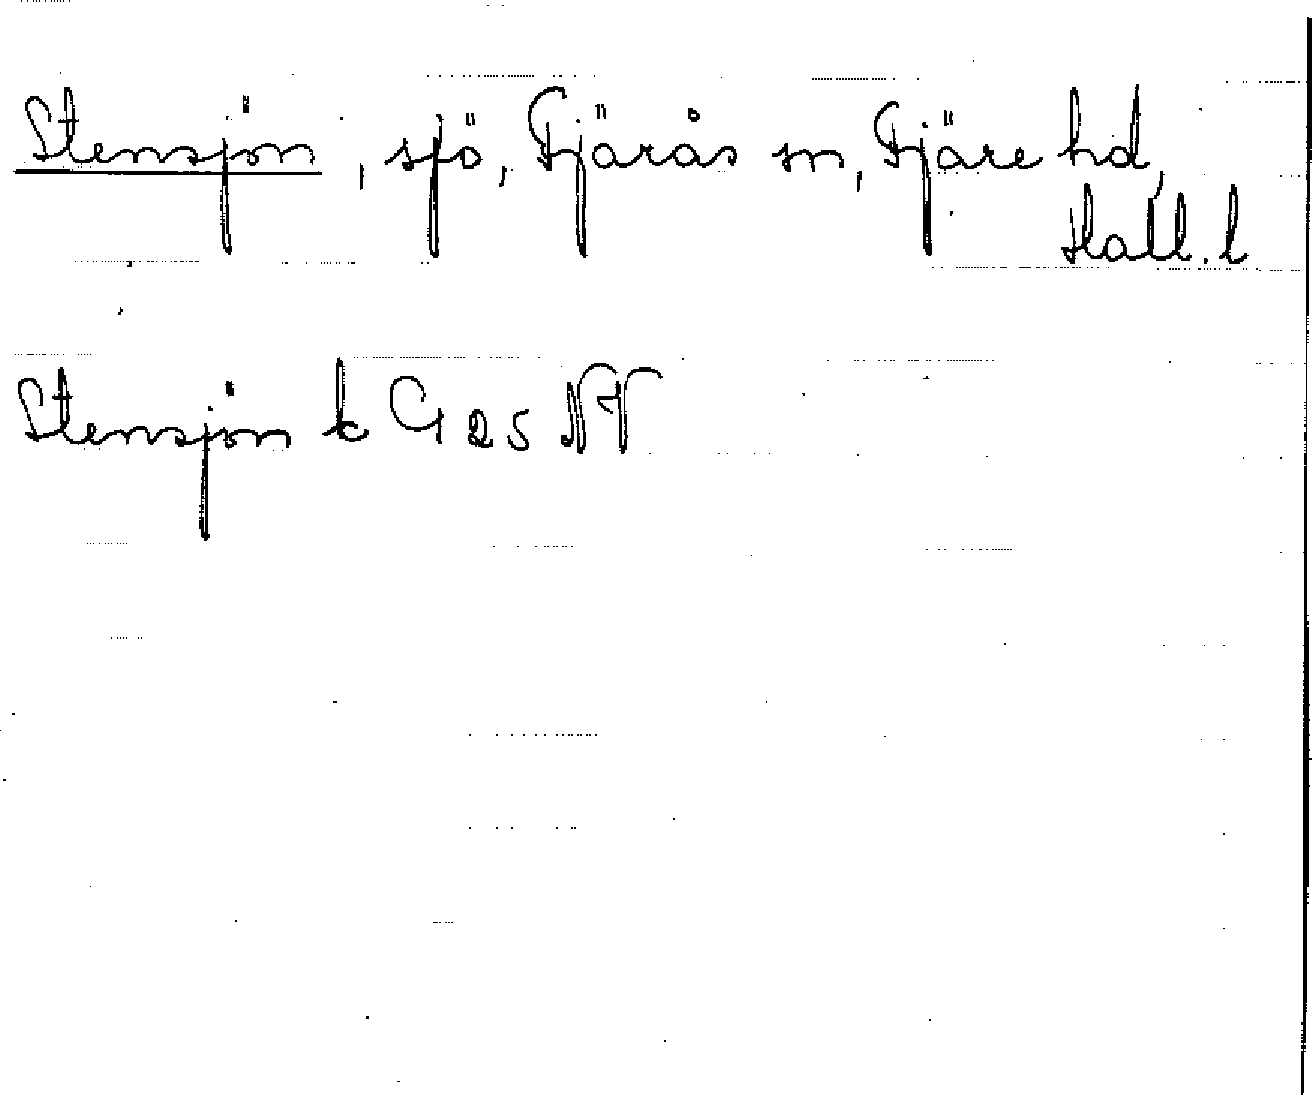 Stensjön, sjö, Fjärås sn, Fjäre hd,
Hall. l
Stensjön k G 25 NV